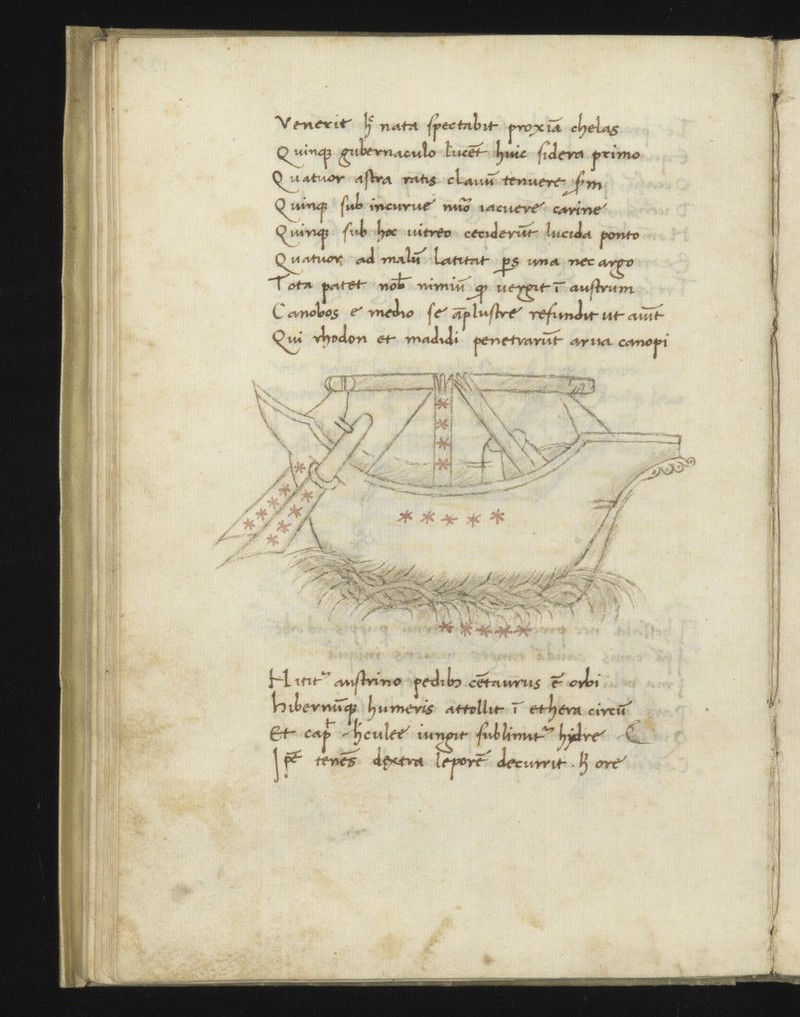 Venerit hec nata spectabit proxīa chelas
Quinqꝫ gubernaculo lucēt huic sidera primo
Quatuor astra ratis clauū tenuere
Quinqꝫ sub incurve iacuere carine
Quinqꝫ sub hoc uitreo ceciderūt lucida ponto
Quatuor ad malū latitat p̄s una nec argo
Tota patet nob̄ nimiū qꝫ vergit ī austrum
Canobos e medio se āplustre refundit ut aiūt
Qui rhodon et madidi penetrarūt arua canopi
Hitit᷑ austrino pedibꝫ cētaurus ē orbi
hibernūqꝫ humeris attollit ī ethera circū
Et cap̄ hculee iungit sublimit᷑ hydre
Ip̄e tenēs dextra leporē decurrit ore